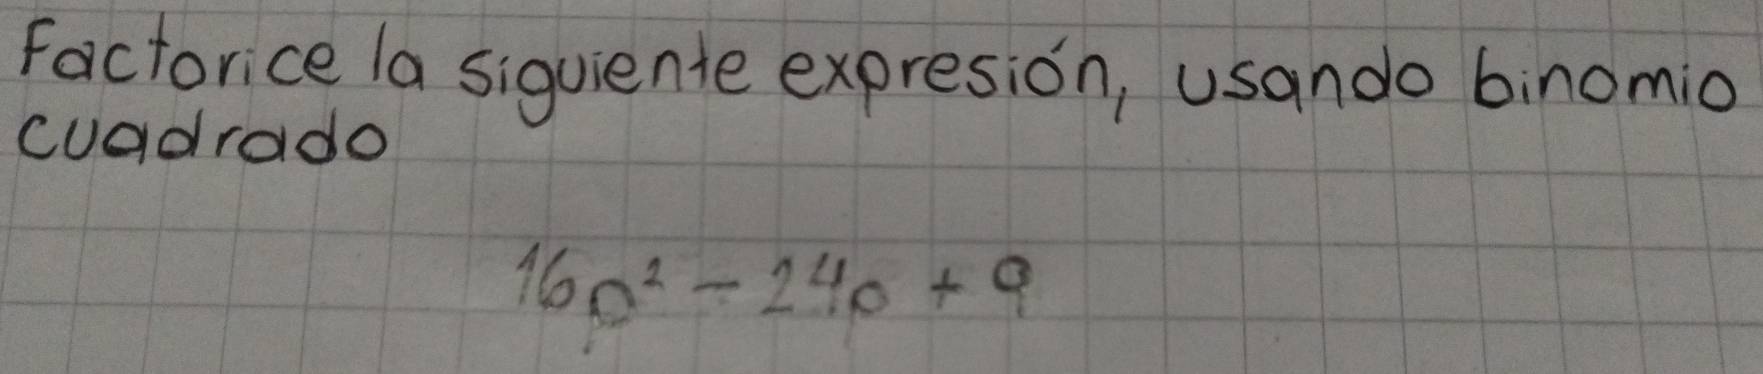 Factorice la siguiente expresión, usando binomio
cuadrado
16p² - 24p + 9